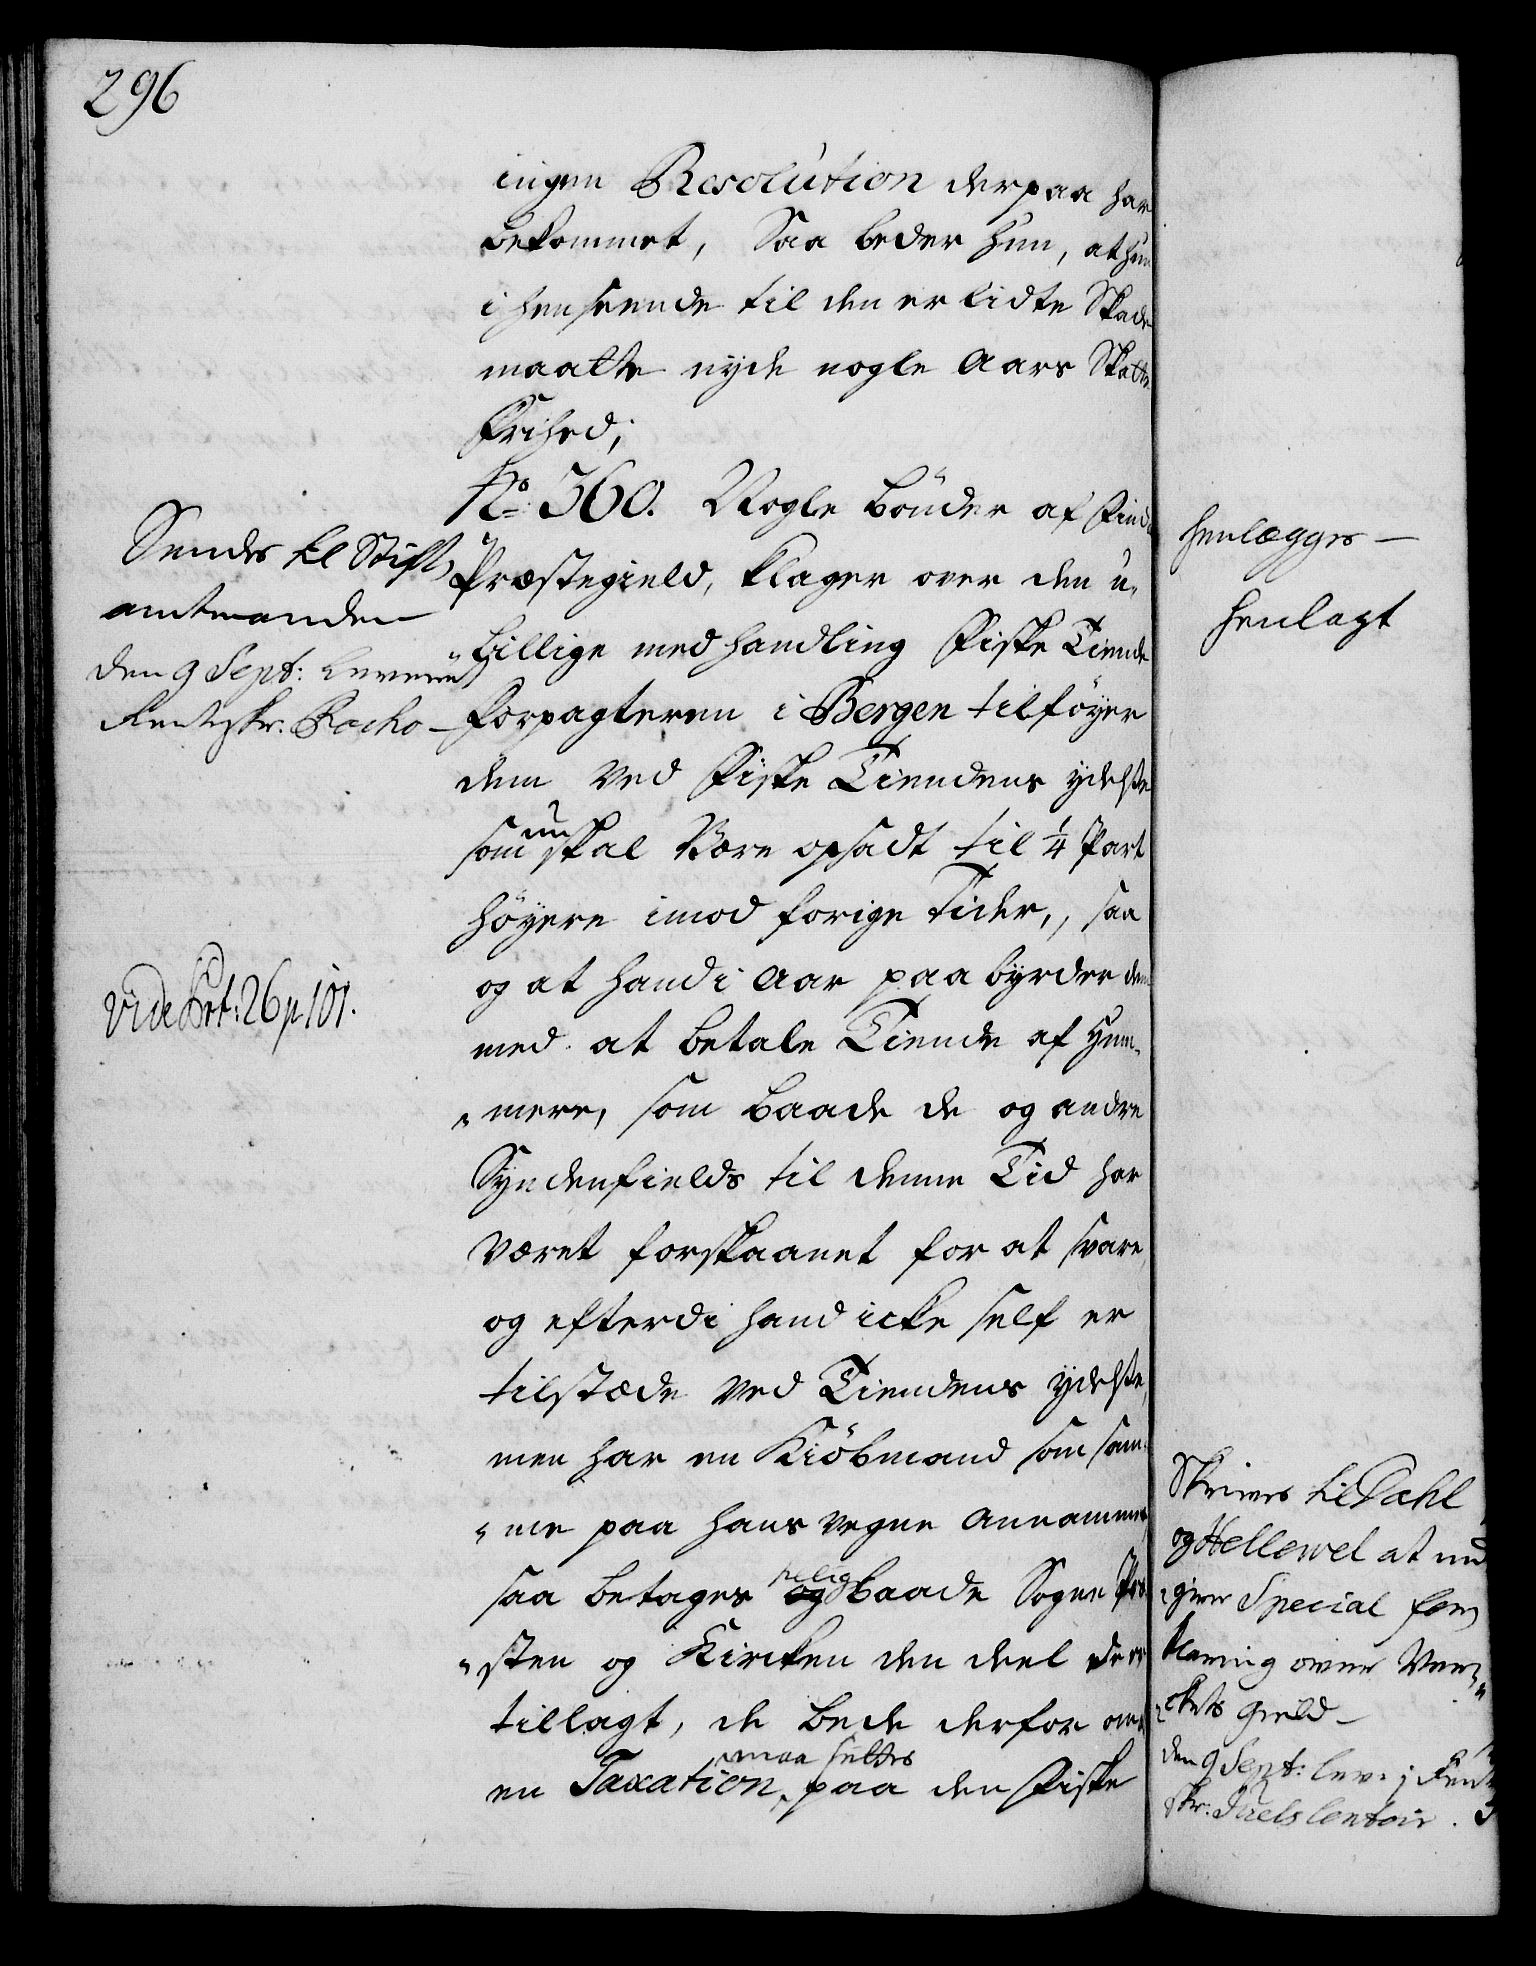 296
ingen Resolution derpaa har
bekommet, Saa beder hun, at hun
i henseende til den er lidte Skade
maatte nyde nogle Aars Skatte
Frihed;
No. 360. Nogle bönder af Find
Præstegield, klager over den u-
billige medhandling Fiske Tiende
Forpagteren i Bergen tilföyer
dem ved Fiske Tiendens ydelse
som nu skal være opsadt til 1/4 Part
höyere imod forige Tider, saa
og at hand i Aar paabyrder dem
med at betale Tiende af Hum-
mere, som baade de og andre
Syndenfields til denne Tid har
været forskaanet for at svare,
og efterdi hand icke self er
tilstæde ved Tiendens ydelse,
men har en Kiöbmand som sam-
me paa hans vegne annammer
saa betages og baade Sogne Præ
sten og Kircken den deel dem er
tillagt, de bede derfor om
en Taxation maa settes paa den Fiske
Sendes til Stift
amtmanden
den 9 Sept: leveret
Rentskr: Bocho
Vide Prt: 26 p. 101.
henlægges
henlagt
Skrives til Dahl
og Hellewel at ind
giver Special for
klaring over Ver-
ckets gield
den 9 Sept: lev: i Rent
skr: Juels Contoir.